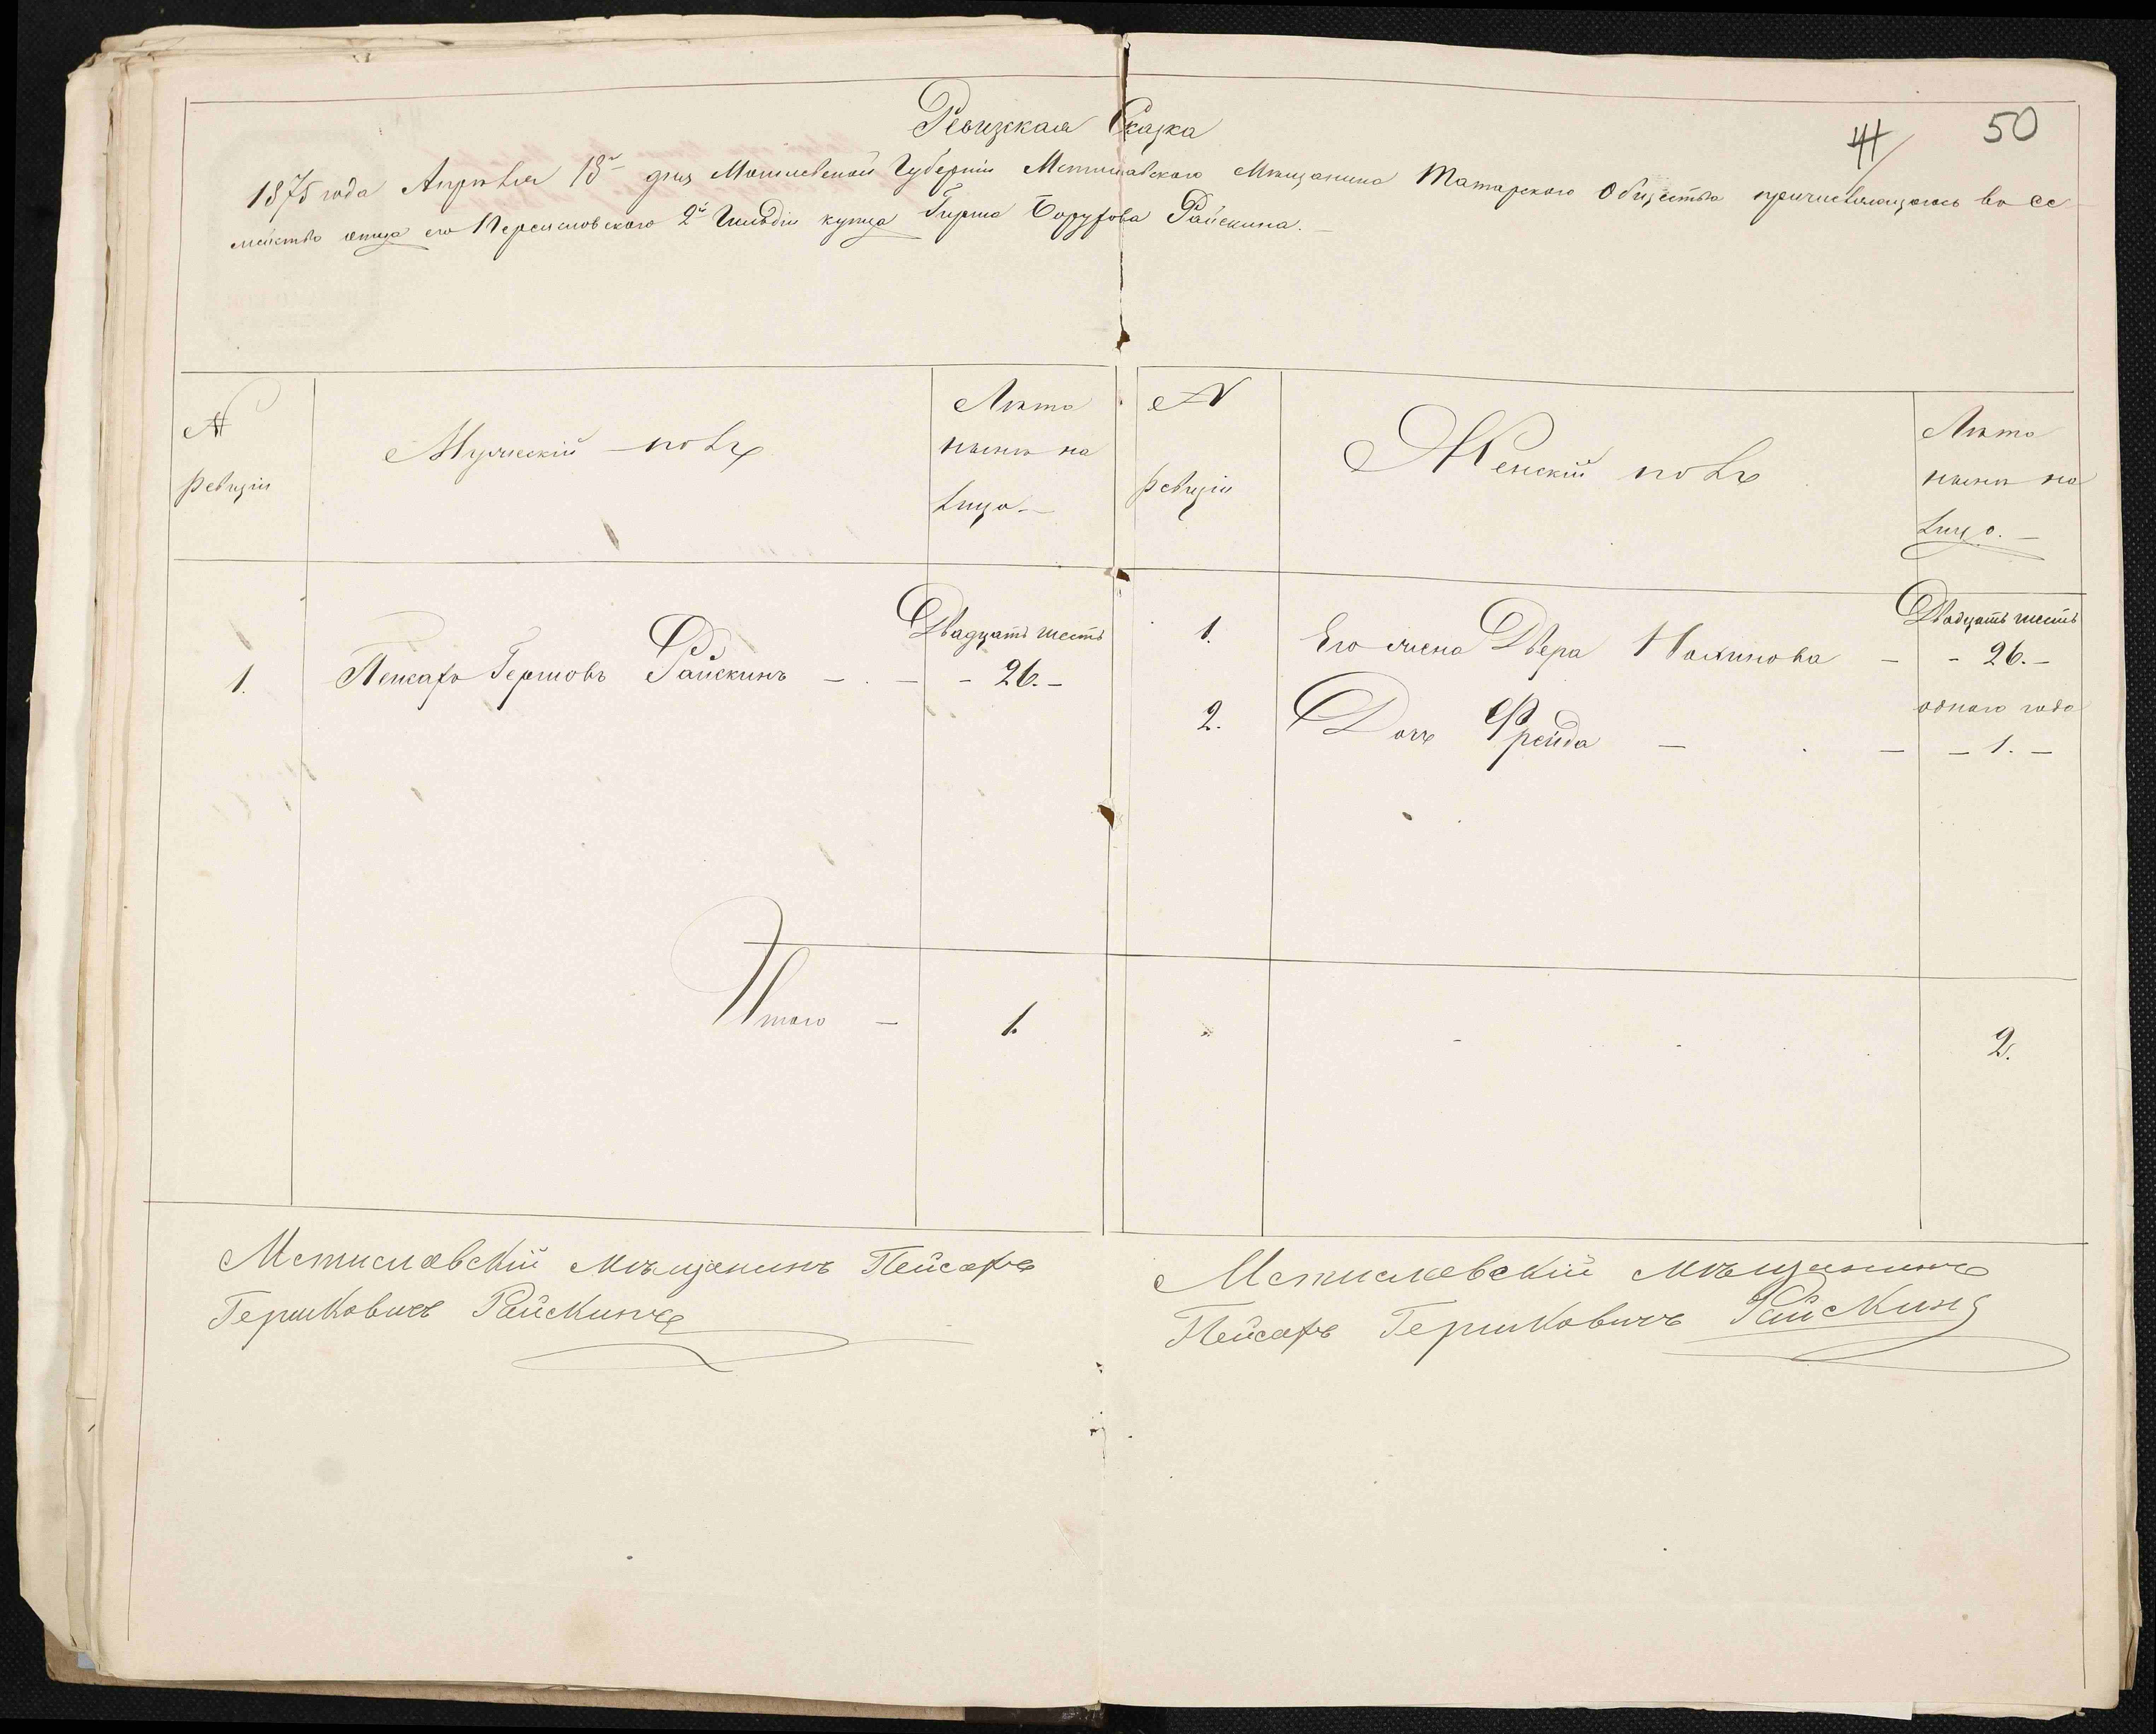 50
Ревизская Сказка
1875 года Апрѣля 18го дня Могилевской Губерніи Мстиславского Мѣщанина Татарского Общества причисляющагось въ се-
мейство отца его Переяславского 2й Гильдіи купца Гирша Борухова Райскина.
№ ревизіи
Мужескій полъ
Лѣта
нынѣ на
лицо.—
№ ревизіи
Женскій полъ
Лѣта
нынѣ на
лицо.—
1. Пейсахъ Гершовъ Райскинъ — Двадцать шесть
- 26.-
1. Его жена Двера — Двадцать шесть
- 26.-
2. Дочь Фрейда — одного года
- 1. -
Итого — 1. 2.
Мстиславскій мѣщанинъ Пейсахъ
Гершковичъ Райскинъ
Мстиславскій мѣщанинъ
Пейсахъ Гершковичъ Райскинъ